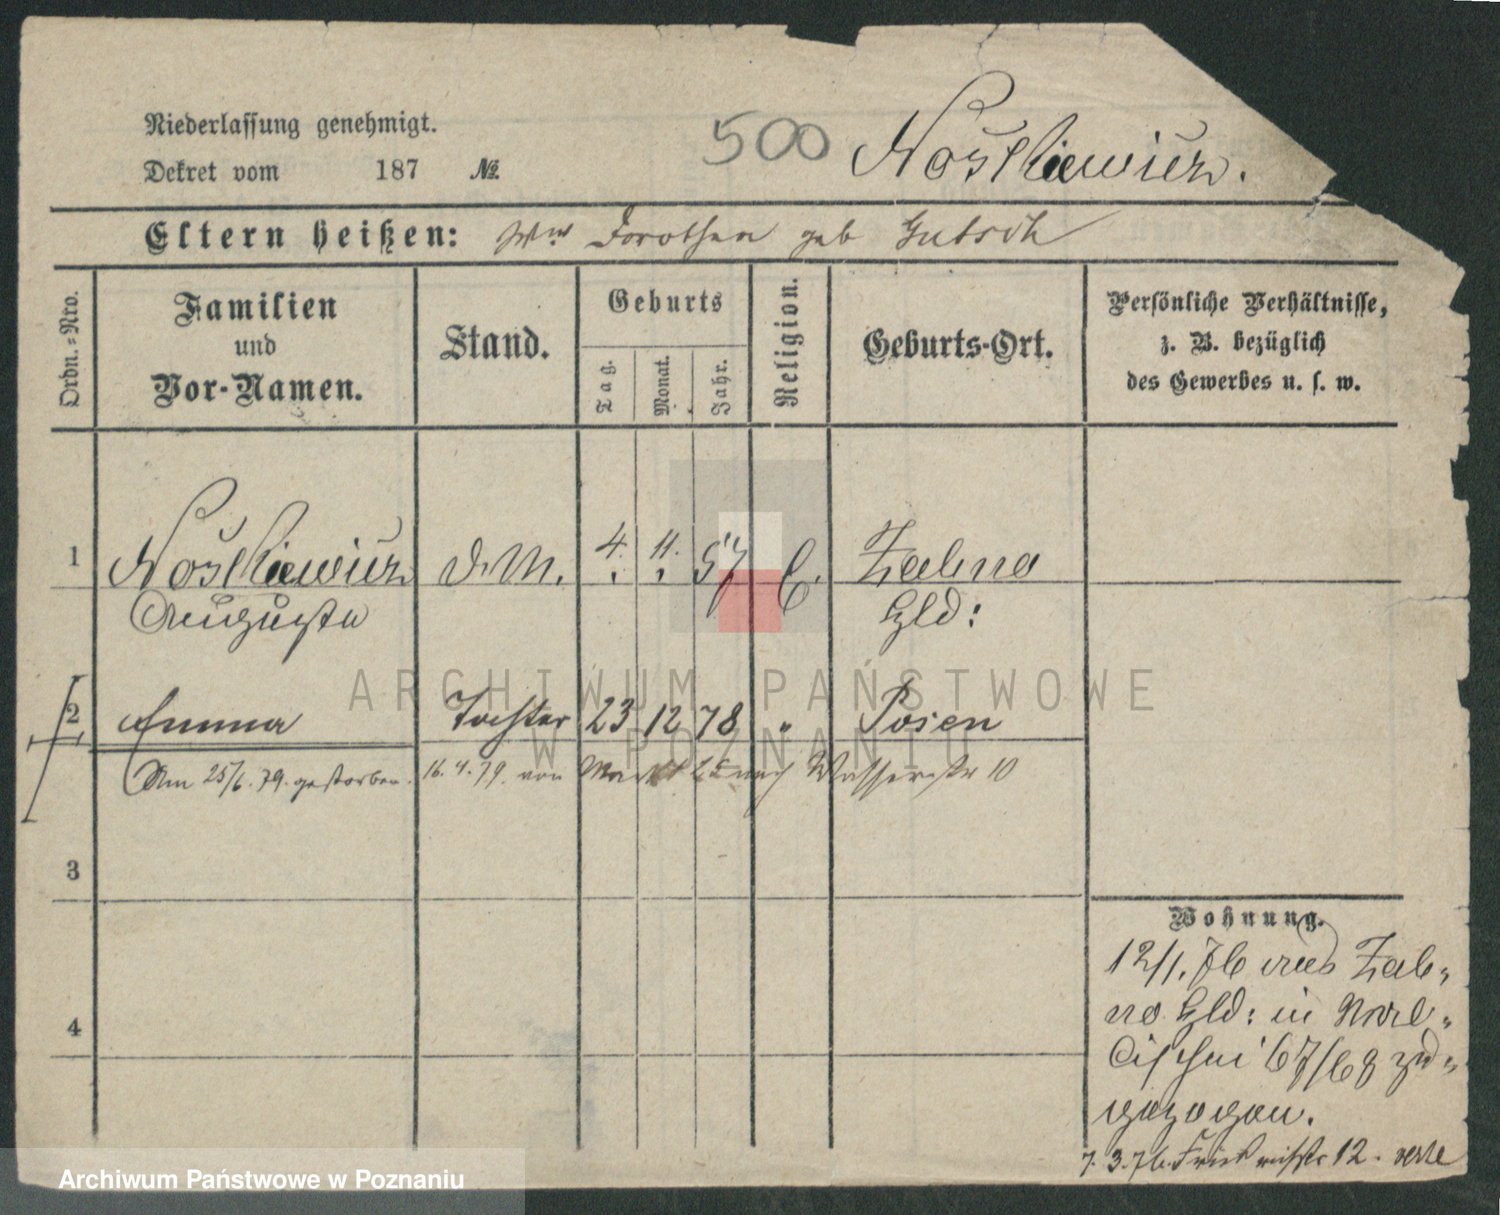 Niederlassung genehmigt.
500 Noskiewicz.
Dekret vom 187 No.
Eltern heißen: Wwe Dorothea geb Gutsch
Ordn.=Nro.
Familien und Vor-Namen.
Stand.
Geburts
Tag.
Monat.
Jahr.
Religion.
Geburts-Ort.
Persönliche Verhältnisse,
z. B. bezüglich
des Gewerbes u. s. w.
1 Noskiewicz d. M. 4. 11. 57 C. Zabno
Auguste Gld:
2 Emma Tochter 23 12 78 " Posen
Am 25/6. 79. gestorben. 16. 4. 79. von Markt nach Wasserstr 10
3
4
Wohnung.
12/1. 76 aus Zab-
no Gld: in
67/68 zu-
gezogen.
7. 3. 76. 12. verte
ARCHIWUM PAŃSTWOWE
W POZNANIU
Archiwum Państwowe w Poznaniu